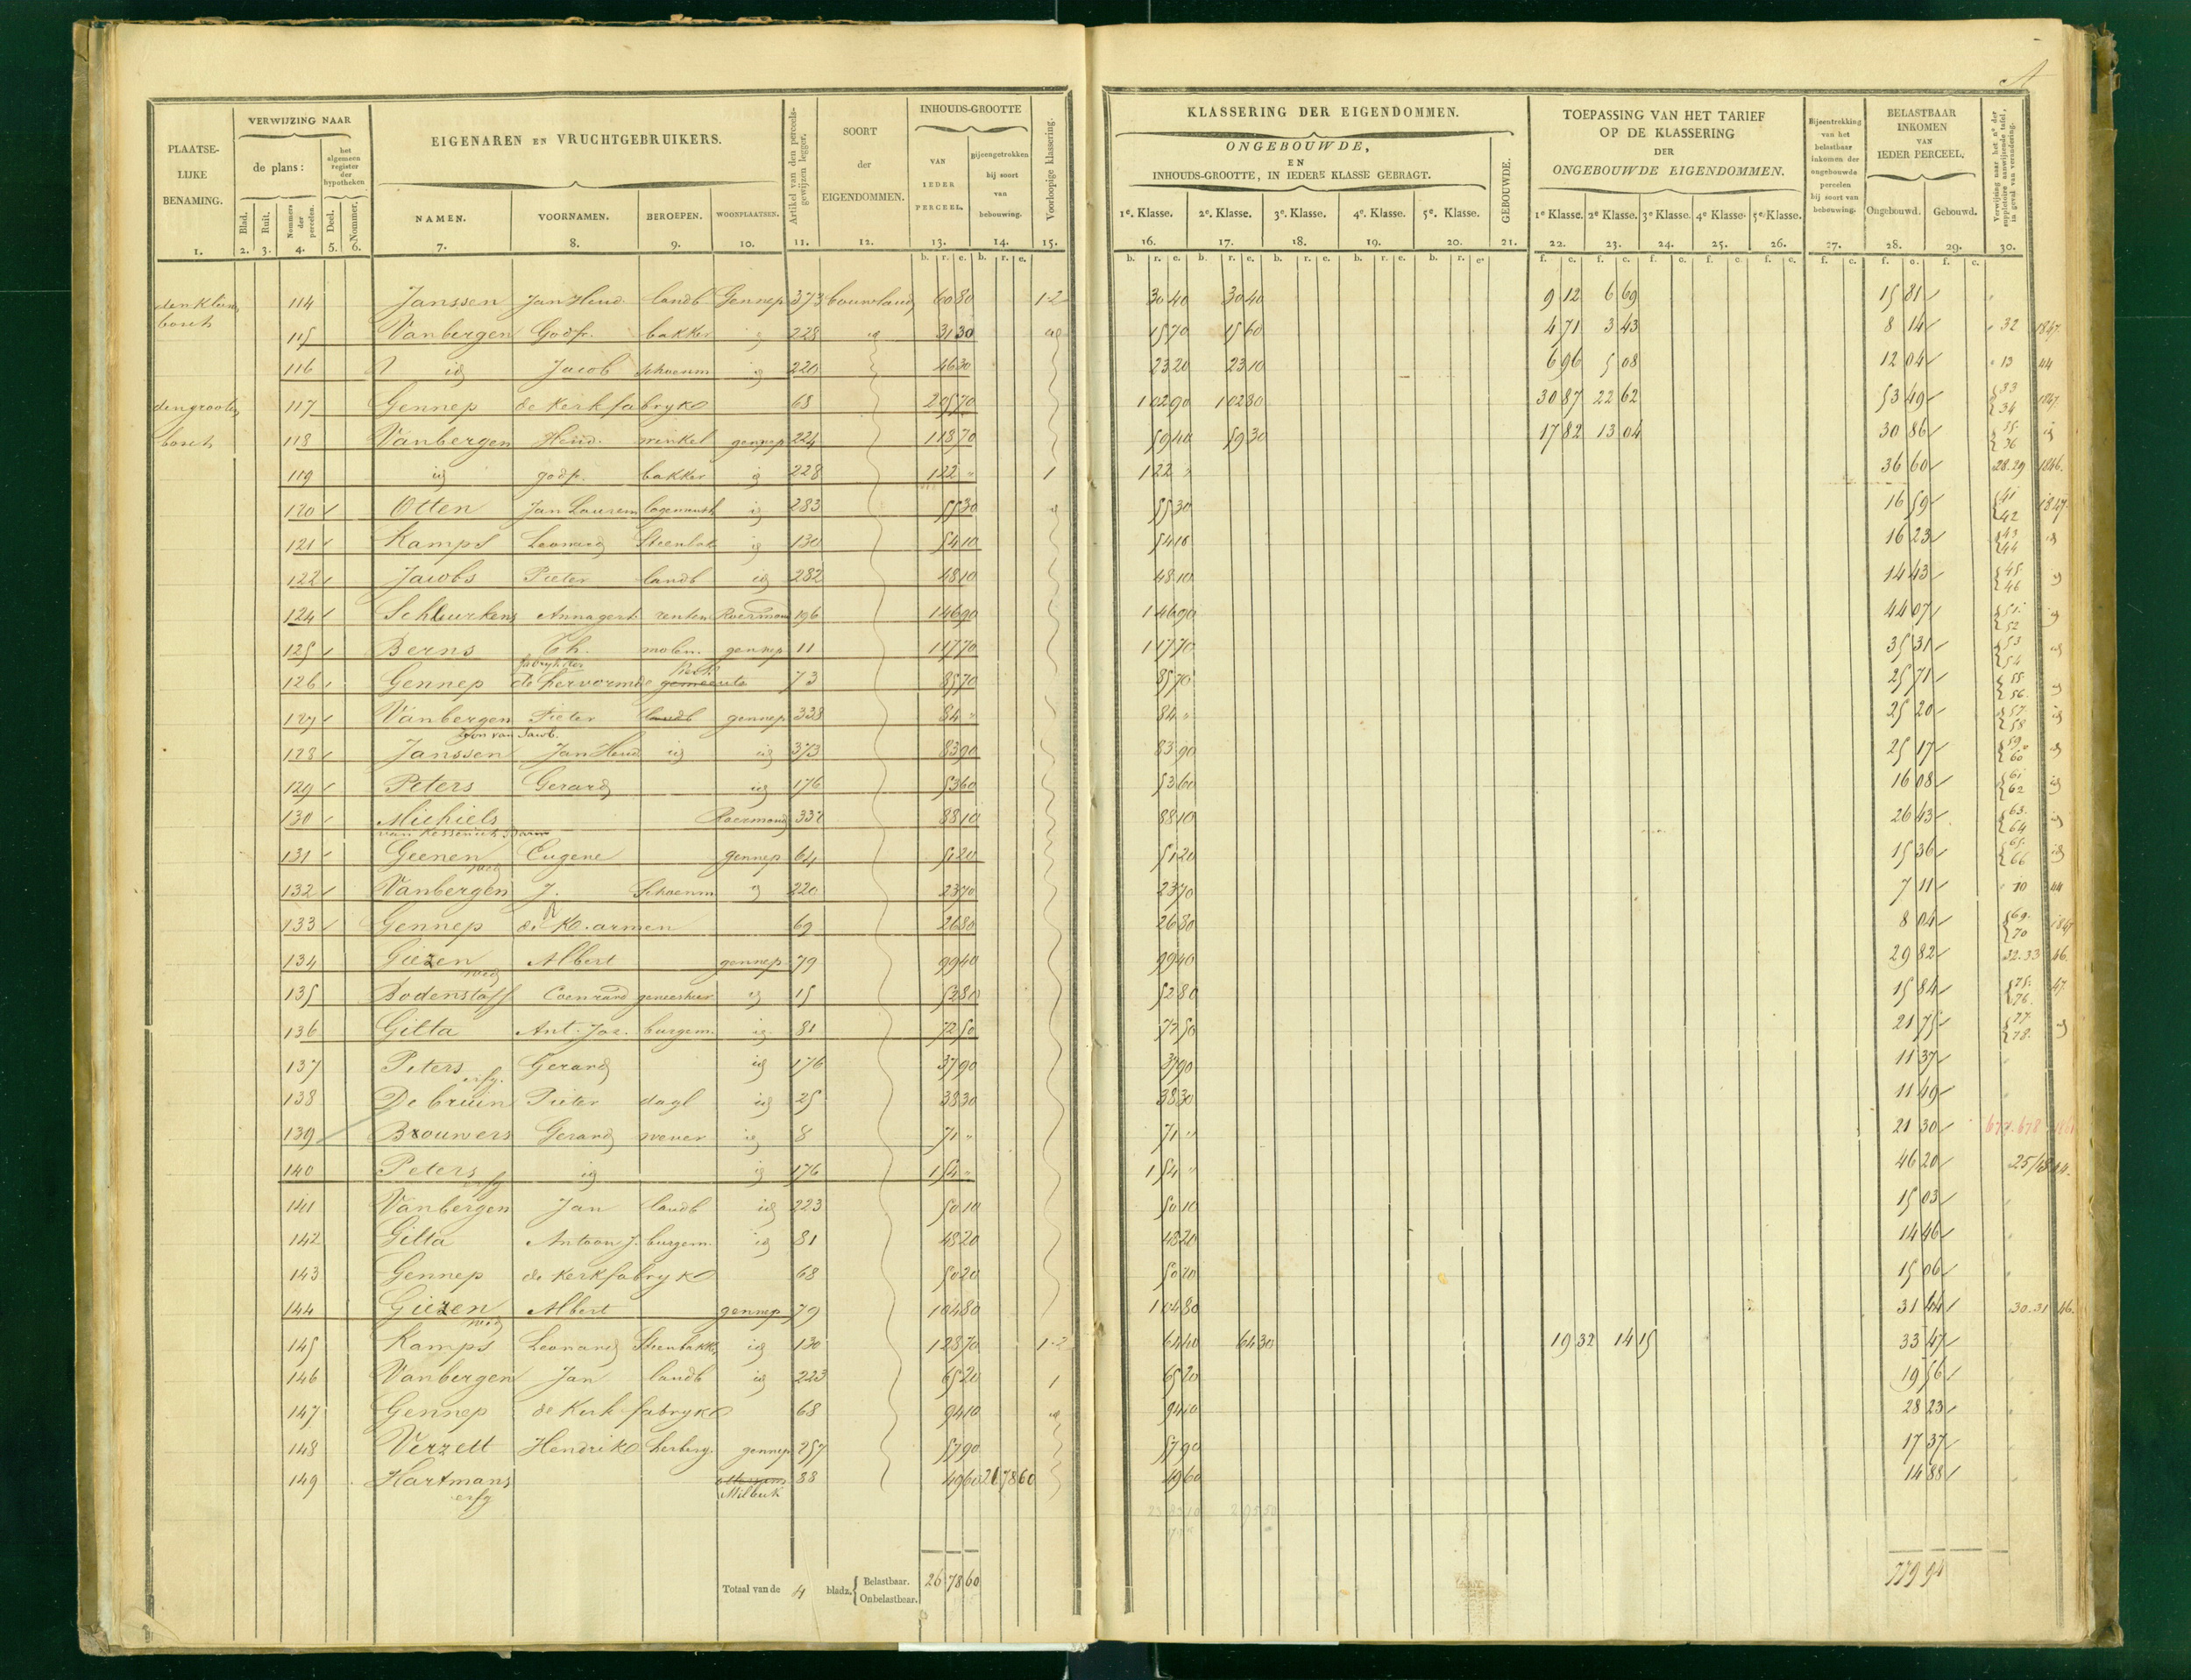 A
PLAATSE-LIJKE BENAMING.
VERWIJZING NAAR
de plans:
het algemeen register der hypotheken
Blad. Ruit. Nommers der perceelen. Deel. Nommer.
EIGENAREN EN VRUCHTGEBRUIKERS.
NAMEN. VOORNAMEN. BEROEPEN. WOONPLAATSEN.
Artikel van den perceels-gewijzen legger.
SOORT der EIGENDOMMEN.
INHOUDS-GROOTTE
VAN IEDER PERCEEL.
bijeengetrokken bij soort van bebouwing.
Voorloopige klassering.
1. 2. 3. 4. 5. 6. 7. 8. 9. 10. 11. 12. 13. 14. 15.
b. r. e. b. r. e.
KLASSERING DER EIGENDOMMEN.
ONGEBOUWDE,
EN
INHOUDS-GROOTTE, IN IEDERE KLASSE GEBRAGT.
GEBOUWDE.
1e. Klasse. 2e. Klasse. 3e. Klasse. 4e. Klasse. 5e. Klasse.
TOEPASSING VAN HET TARIEF
OP DE KLASSERING
DER
ONGEBOUWDE EIGENDOMMEN.
1e Klasse. 2e Klasse. 3e Klasse. 4e Klasse. 5e Klasse.
Bijeentrekking van het belastbaar inkomen der ongebouwde perceelen bij soort van bebouwing.
BELASTBAAR INKOMEN VAN IEDER PERCEEL.
Ongebouwd. Gebouwd.
Verwijzing naar het nº der suppletoire aanwijzende tafel, in geval van verandering.
16. 17. 18. 19. 20. 21. 22. 23. 24. 25. 26. 27. 28. 29. 30.
114 Janssen Jan Hend landb Gennep 373 bouwland 60 80 1-2 30 40 30 40 9 12 6 69 15 81
bosch
115 Vanbergen Godfr. bakker id 228 id 31 30 id 15 70 15 60 4 71 3 43 8 14 32 1847
116 id Jacob Schoenm id 220 46 30 23 20 23 10 6 96 5 08 12 04 13 44
den grooten 117 Gennep de Kerkfabryk 68 2 05 70 1 02 90 1 02 80 30 87 22 62 53 49 33 34 1847
bosch 118 Vanbergen Hend. winkel gennep 224 1 18 70 59 40 59 30 17 82 13 04 30 86 35 36 id
119 id godfr. bakker id 228 1 22 " 1 1 22 " 36 60 28.29 1846.
120 Otten Jan Laurens id 283 55 30 id 55 30 16 59 41 42 1847
121 Kamps Leonard Steenbak id 130 54 10 54 10 16 23 43 44 id
122 Jacobs Pieter landb id 282 48 10 48 10 14 43 45 46 id
124 Scheurkens Anna gert renten Roermond 196 1 46 90 1 46 90 44 07 51 52 id
125 Berns Th. molen. gennep 11 1 17 70 1 17 70 35 31 53 54 id
fabryk der Kerk
126 Gennep de hervormde gemeente 73 85 70 85 70 25 71 55 56. id
127 Vanbergen Pieter landb gennep 338 84 " 84 " 25 20 57 58 id
Zoon van Jacob.
128 Janssen Jan Hend id id 373 83 90 83 90 25 17 59 60 id
129 Peters Gerard id 176 53 60 53 60 16 08 61 62 id
130 Michiels Roermond 337 88 10 88 10 26 43 63. 64 id
van Kessenich
131 Geenen Eugene gennep 64 51 20 51 20 15 36 65. 66 id
wed
132 Vanbergen J. Schoenm id 220 23 70 23 70 7 11 10 44
133 Gennep de R. K. armen 69 26 80 26 80 8 04 69. 70 1847
134 Giezen Albert gennep 79 99 40 99 40 29 82 32.33 46.
wed
135 Bodenstaff Coenraad geneesheer id 15 52 80 52 80 15 84 75. 76. 47.
136 Gilta Ant. Jos. burgem. id 81 72 50 72 50 21 75 77 78. id
137 Peters Gerard id 176 37 90 37 90 11 37
erfg.
138 De bruin Pieter dagl id 25 38 30 38 30 11 49
139 Brouwers Gerard wever id 8 71 " 71 " 21 30 677.678
140 Peters id id 176 1 54 " 1 54 " 46 20 25/48 44.
erfg
141 Vanbergen Jan landb id 223 50 10 50 10 15 03
142 Gilta Antoon J. burgem. id 81 48 20 48 20 14 46
143 Gennep de kerkfabryk 68 50 20 50 20 15 06
144 Giezen Albert gennep 79 1 04 80 1 04 80 31 44 30.31 46.
wed
145 Kamps Leonard Steenbakker id 130 1 28 70 1-2 64 40 64 30 19 32 14 15 33 47
146 Vanbergen Jan landb id 223 65 20 1 65 20 19 56
147 Gennep de Kerk fabryk 68 94 10 id 94 10 28 23
148 Verzett Hendrik herberg. gennep 257 57 90 57 90 17 37
149 Hartmans 88 49 60 26 78 60 49 60 14 88
erfg Milbeek
Totaal van de 4 bladz. Belastbaar. 26 78 60
Onbelastbaar.
779 94